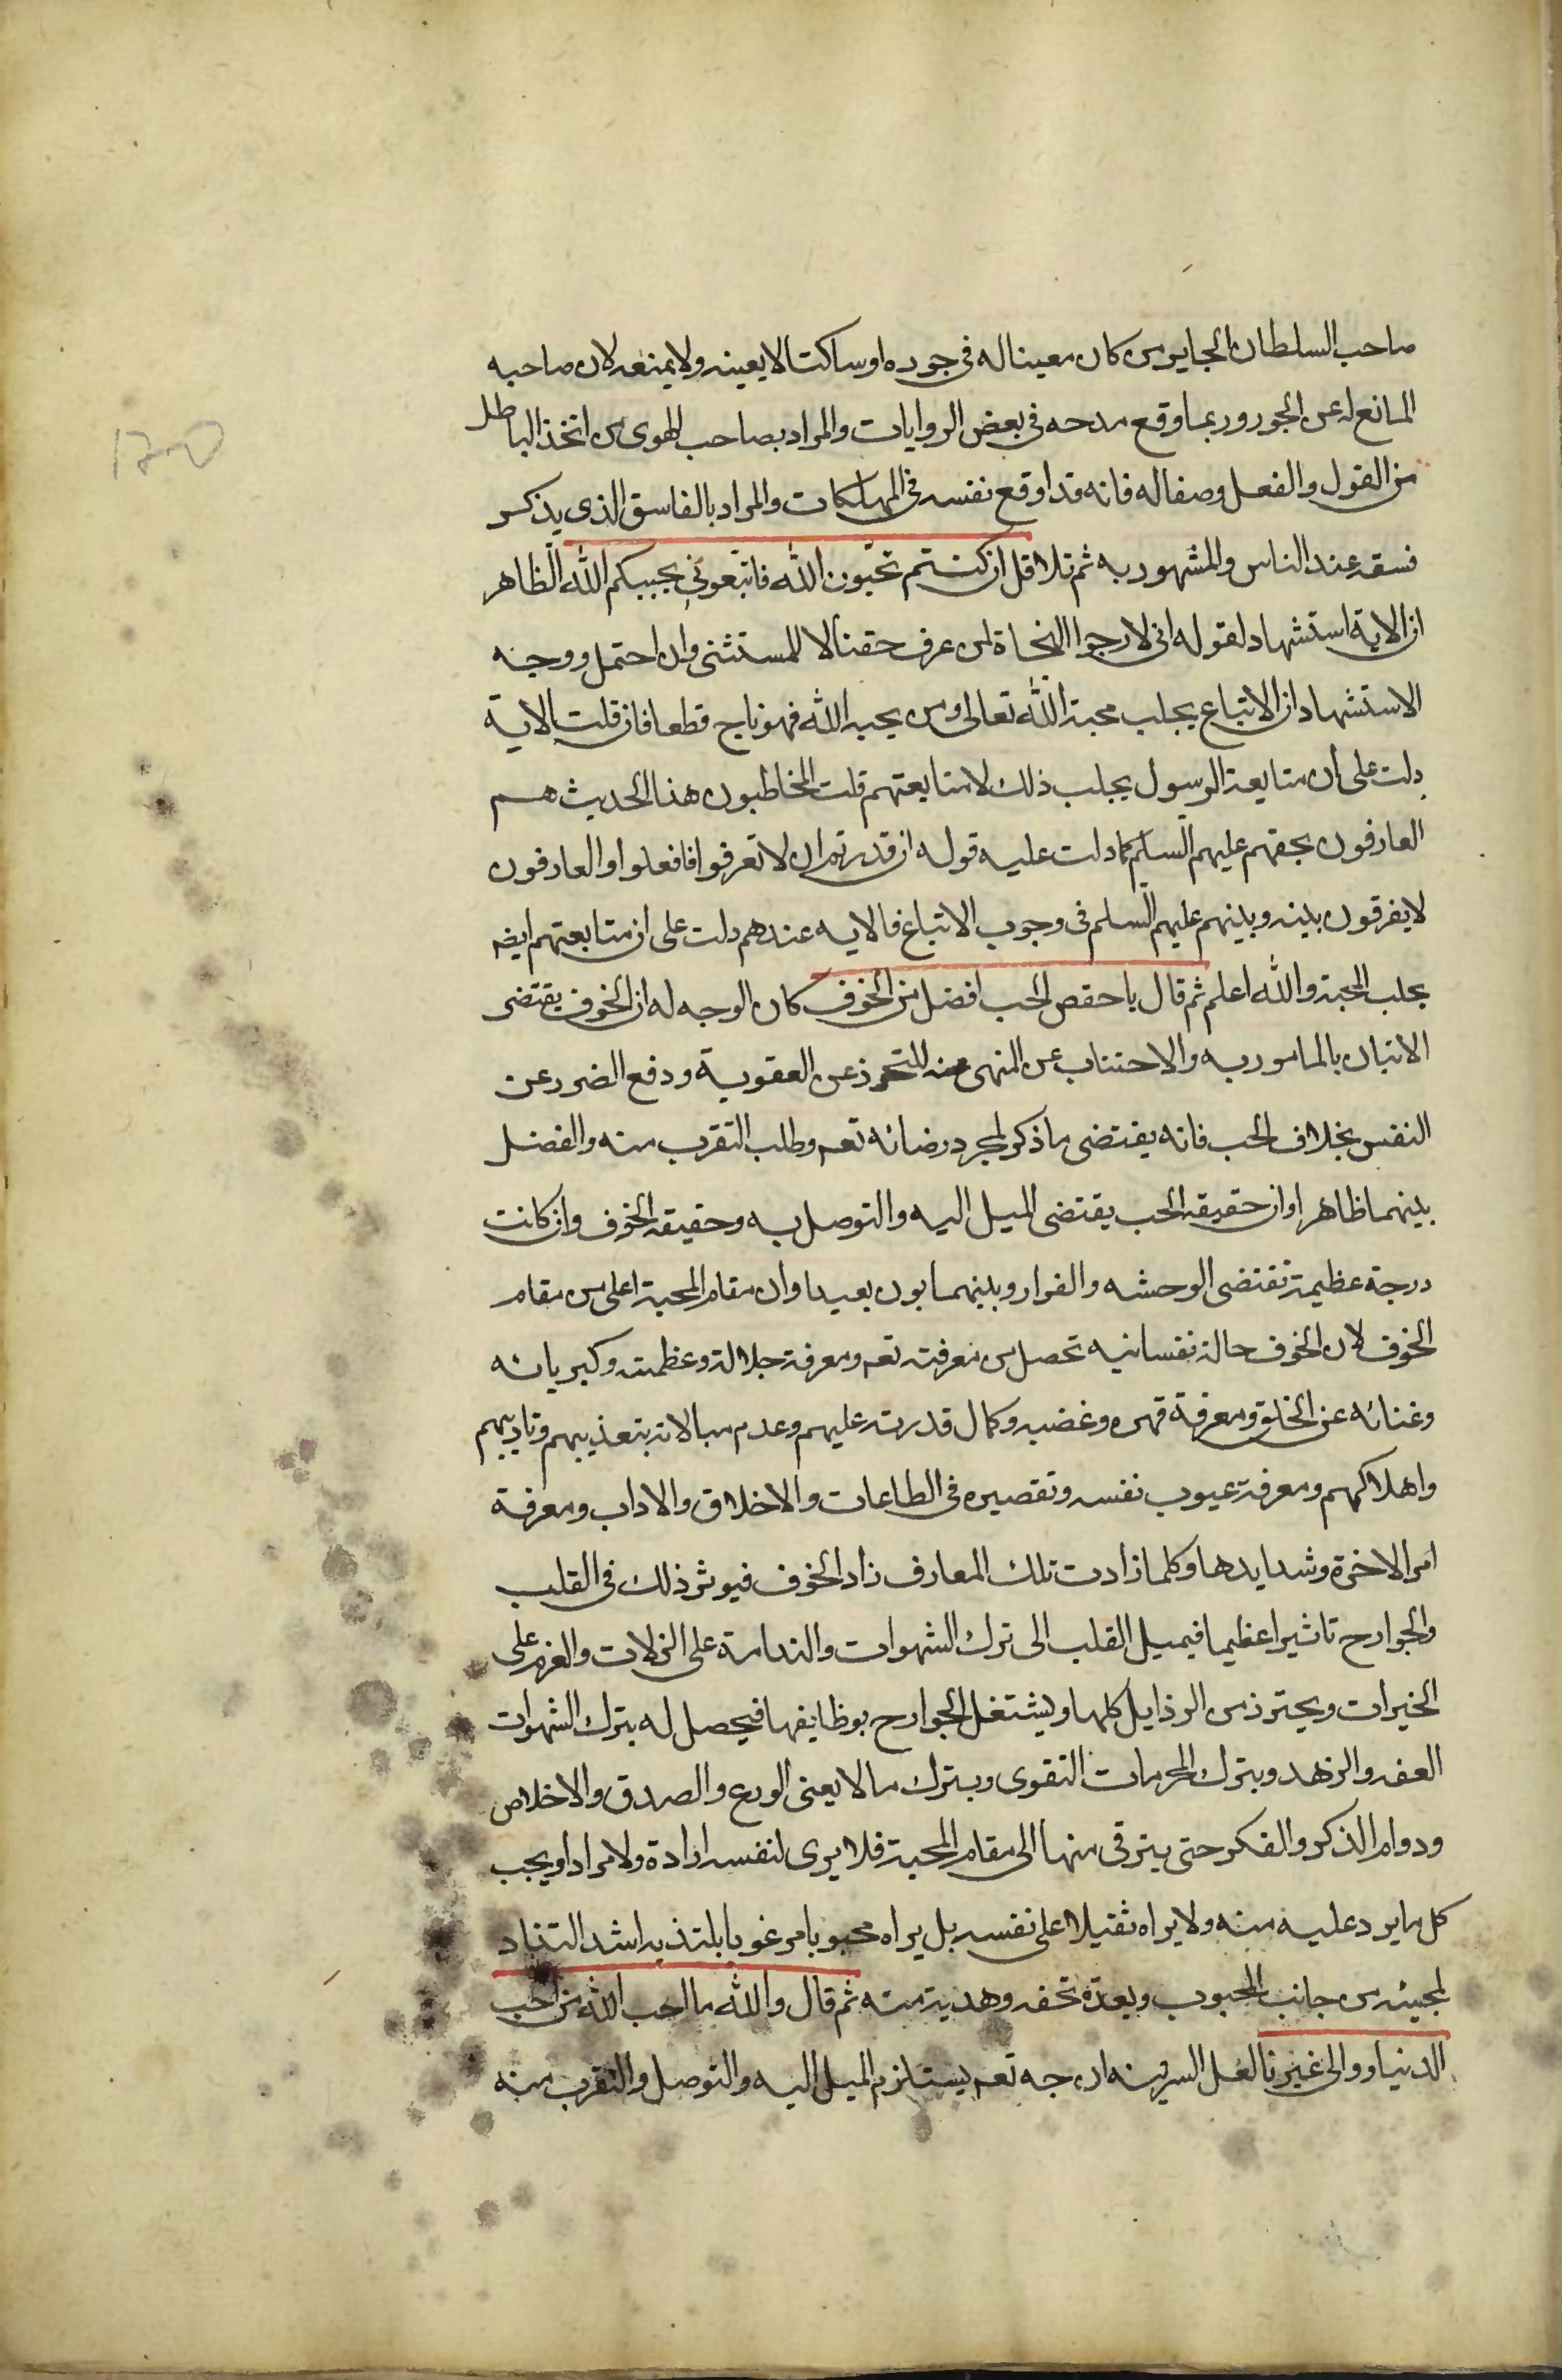 صاحب السلطان الجاير من كان معينا له فى جوره او ساكتا لا يعينه ولا يمنعه لان صاحبه
المانع له عن الجور وربما وقع مدحه فى بعض الروايات والمراد بصاحب الهوى من اتخذ الباطل
من القول والفعل وصفا له فانه قد اوقع نفسه فى المهلكات والمراد بالفاسق الذى يذكر
فسقه عند الناس والمشهور به ثم تلا قل ان كنتم تحبّون الله فاتّبعونى يحببكم الله الظاهر
ان الاية استشهاد لقوله انى لارجوا النجاة لمن عرف حقنا لا للمستثنى وان احتمل ووجه
الاستشهاد ان الاتباع يجلب محبة الله تعالى ومن يحبه الله فهو ناج قطعا فان قلت الاية
دلت على ان متابعة الرسول يجلب ذلك لا متابعتهم قلت المخاطبون هذا الحديث هم
العارفون بحقهم عليهم السلم كما دلت عليه قوله ان قدرتم ان لا تعرفوا فافعلوا والعارفون
لا يفرقون بينه وبينهم عليهم السلم فى وجوب الاتباع فالايه عندهم دلت على ان متابعتهم ايضه
يجلب المحبة والله اعلم ثم قال يا حفص الحب افضل من الخوف كان الوجه له ان الخوف يقتضى
الاتيان بالمامور به والاجتناب عن المنهى عنه للتحرز عن العقوبة ودفع الضرر عن
النفس بخلاف الحب فانه يقتضى ما ذكر لمجرد رضائه تعه وطلب التقرب منه والفضل
بينهما ظاهر او ان حقيقه الحب يقتضى الميل اليه والتوصل به وحقيقه الخوف وان كانت
درجة عظيمة تقتضى الوحشه والفرار وبينهما بون بعيد او ان مقام المحبة اعلى من مقام
الخوف لان الخوف حالة نفسانيه تحصل من معرفته تعه ومعرفة جلالة وعظمته وكبريائه
وغنائه عن الخلق ومعرفة قهره وغضبه وكمال قدرته عليهم وعدم مبالاته بتعذيبهم وتاديبهم
واهلاكهم ومعرفة عيوب نفسه وتقصيره فى الطاعات والاخلاق والاداب ومعرفة
امر الاخرة وشدايدها وكلما زادت تلك المعارف زاد الخوف فيوثر ذلك فى القلب
والجوارح تاثيرا عظيما فيميل القلب الى ترك الشهوات والندامة على الزلات والعزم على
الخيرات ويحترز من الرذايل كلها ويشتغل الجوارح بوظايفها فيحصل له بترك الشهوات
العفه والزهد وبترك المحرمات التقوى وبترك ما لا يعنى الورع والصدق والاخلاص
ودوام الذكر والفكر حتى يترقى منها الى مقام المحبة فلا يرى لنفسه ارادة ولا مرادا ويحب
كل ما يرد عليه منه ولا يراه ثقيلا على نفسه بل يراه محبوبا مرغوبا يلتذ به اشد التذاد
لمجيئه من جانب المحبوب ويعدّه تحفه وهدية منه ثم قال والله ما احب الله من احب
الدنيا ووالى غيرنا لعل السر فيه ان حبه تعه يستلزم الميل اليه والتوصل والتقرب منه